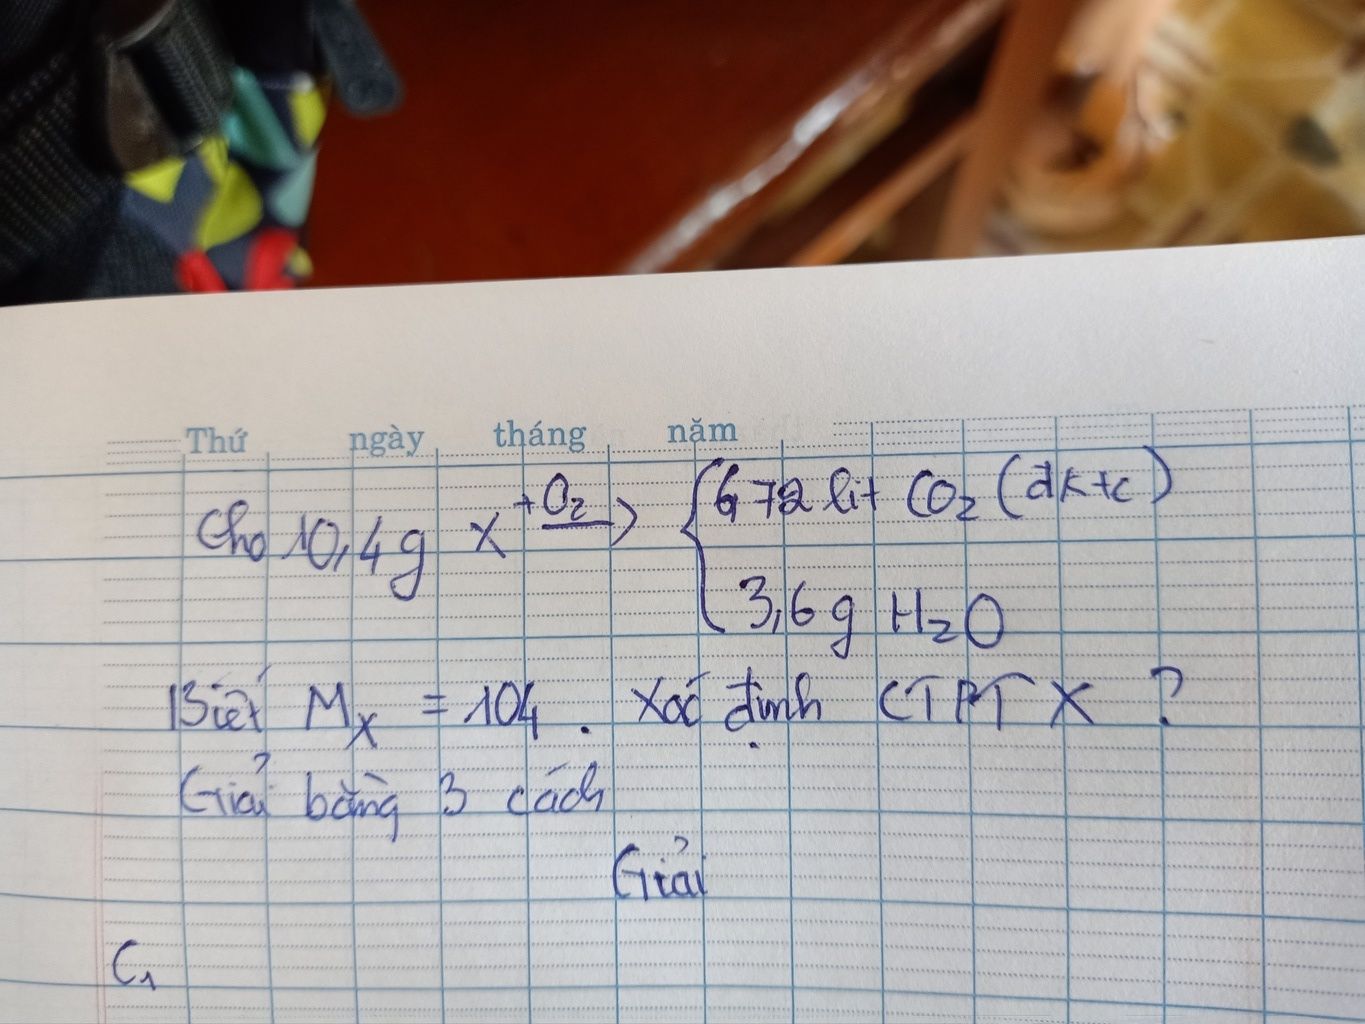 Thứ ngày tháng năm
Cho 10,4g X +O₂→ { 6,72 lit CO₂ (đktc)
3,6g H₂O
Biết Mₓ = 104. Xác định CTPT X ?
Giải bằng 3 cách
Giải
C₁